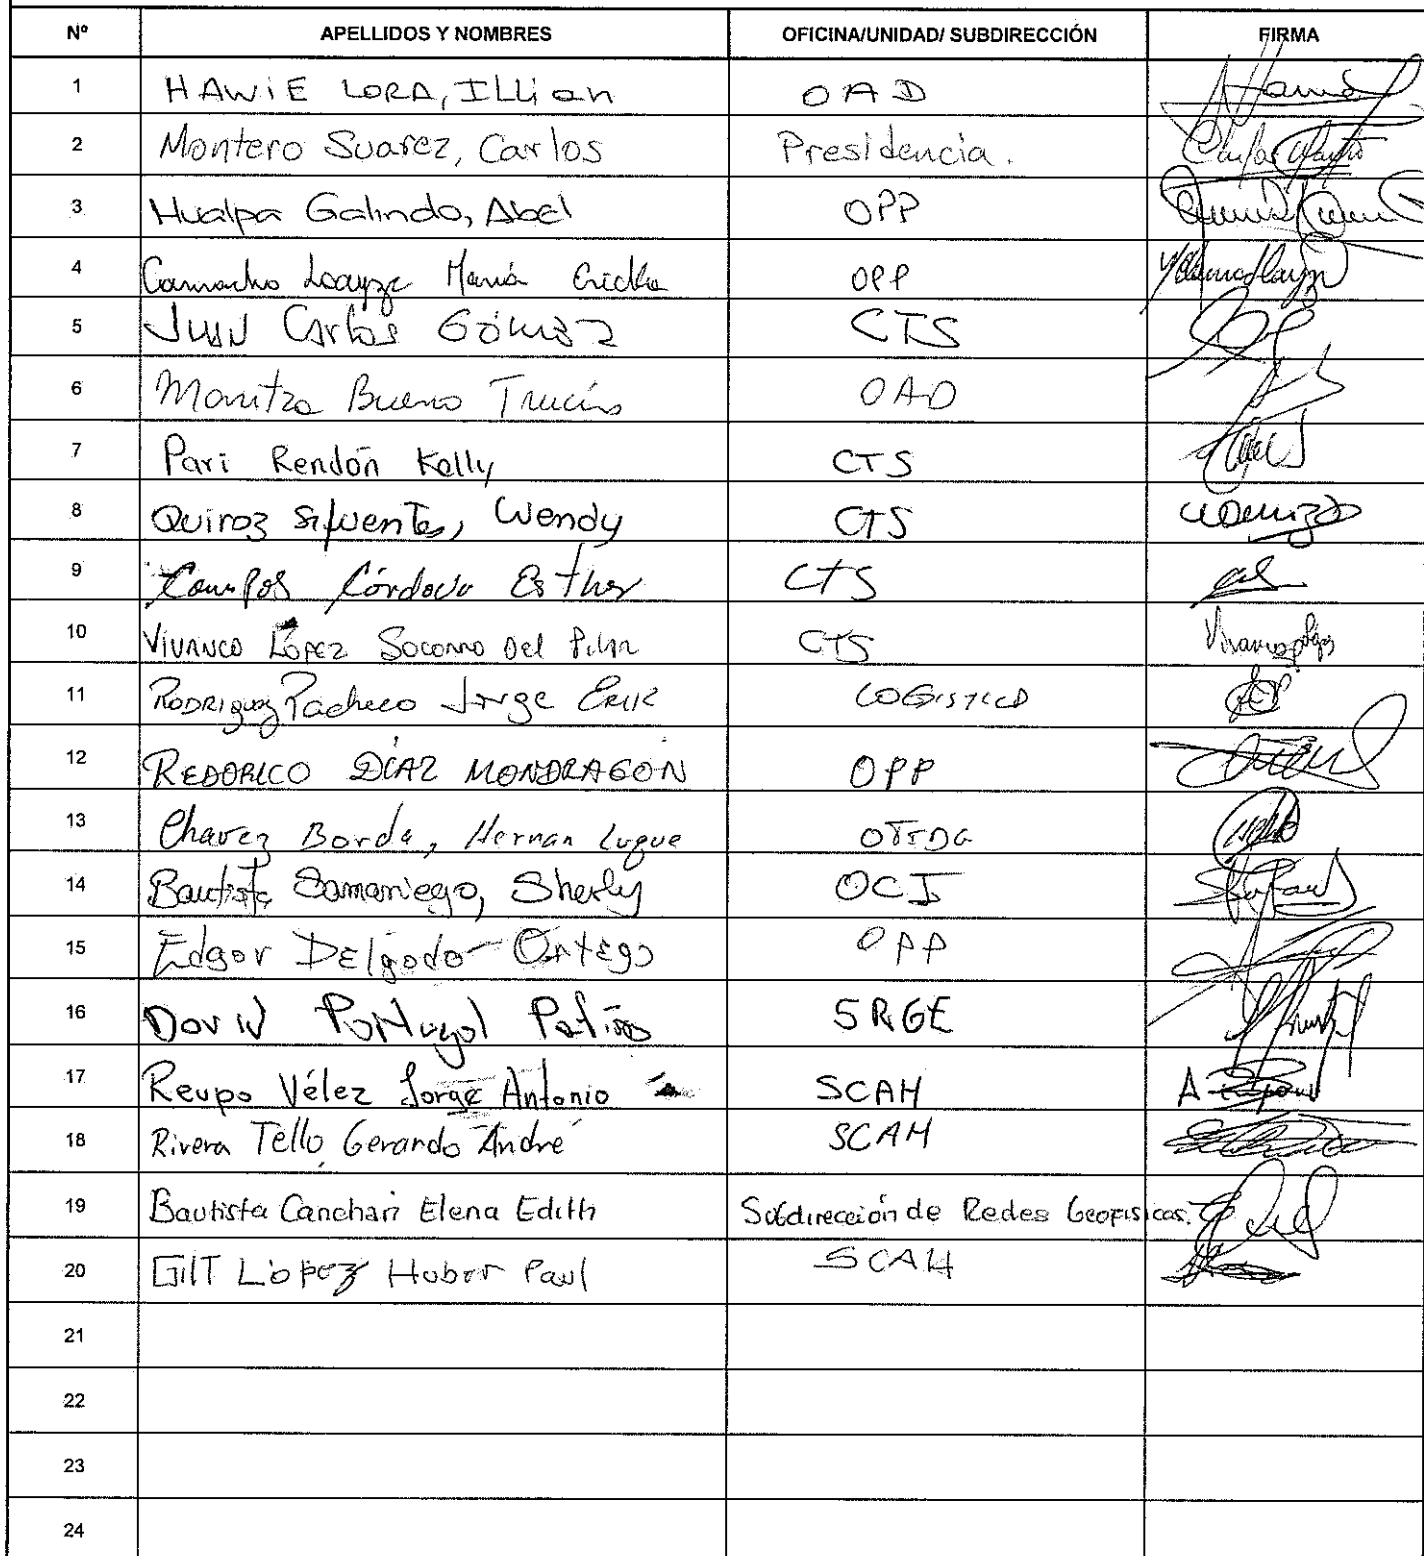 Nº APELLIDOS Y NOMBRES OFICINA/UNIDAD/ SUBDIRECCIÓN FIRMA
1 HAWIE LORA, ILLian OAD
2 Montero Suarez, Carlos Presidencia.
3 Hualpa Galindo, Abel OPP
4 Camacho Loayza María Ericka OPP
5 Juan Carlos Gómez CTS
6 Maritza Bueno Trucíos OAD
7 Pari Rendón Kelly CTS
8 Quiroz Sifuentes, Wendy CTS
9 Campos Córdova Esther CTS
10 Vivanco López Socorro Del Pilar CTS
11 Rodriguez Pacheco Jorge Erik LOGISTICA
12 REDORICO DÍAZ MONDRAGON OPP
13 Chavez Borda, Hernan Luque OTIDG
14 Bautista Samaniego, Sherly OCI
15 Edgar Delgado Ortega OPP
16 David Portugal Patiño SRGE
17 Reupo Vélez Jorge Antonio SCAH
18 Rivera Tello Gerardo André SCAH
19 Bautista Canchari Elena Edith Subdirección de Redes Geofísicas.
20 Gilt López Huber Paul SCAH
21
22
23
24